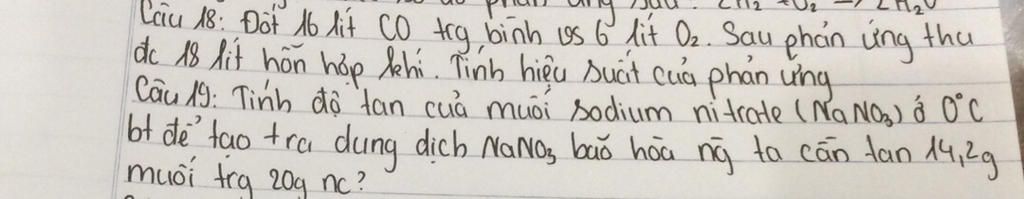 phản ứng sau: 2H₂ + O₂ → 2H₂O
Câu 18: Đốt 16 lít CO trg bình vs 6 lít O₂. Sau phản ứng thu
đc 18 lít hỗn hợp khí. Tính hiệu suất của phản ứng
Câu 19: Tính độ tan của muối sodium nitrate (NaNO₃) ở 0°C
bt để tạo tra dung dịch NaNO₃ bão hòa ng ta cần tan 14,2g
muối trg 20g nc?